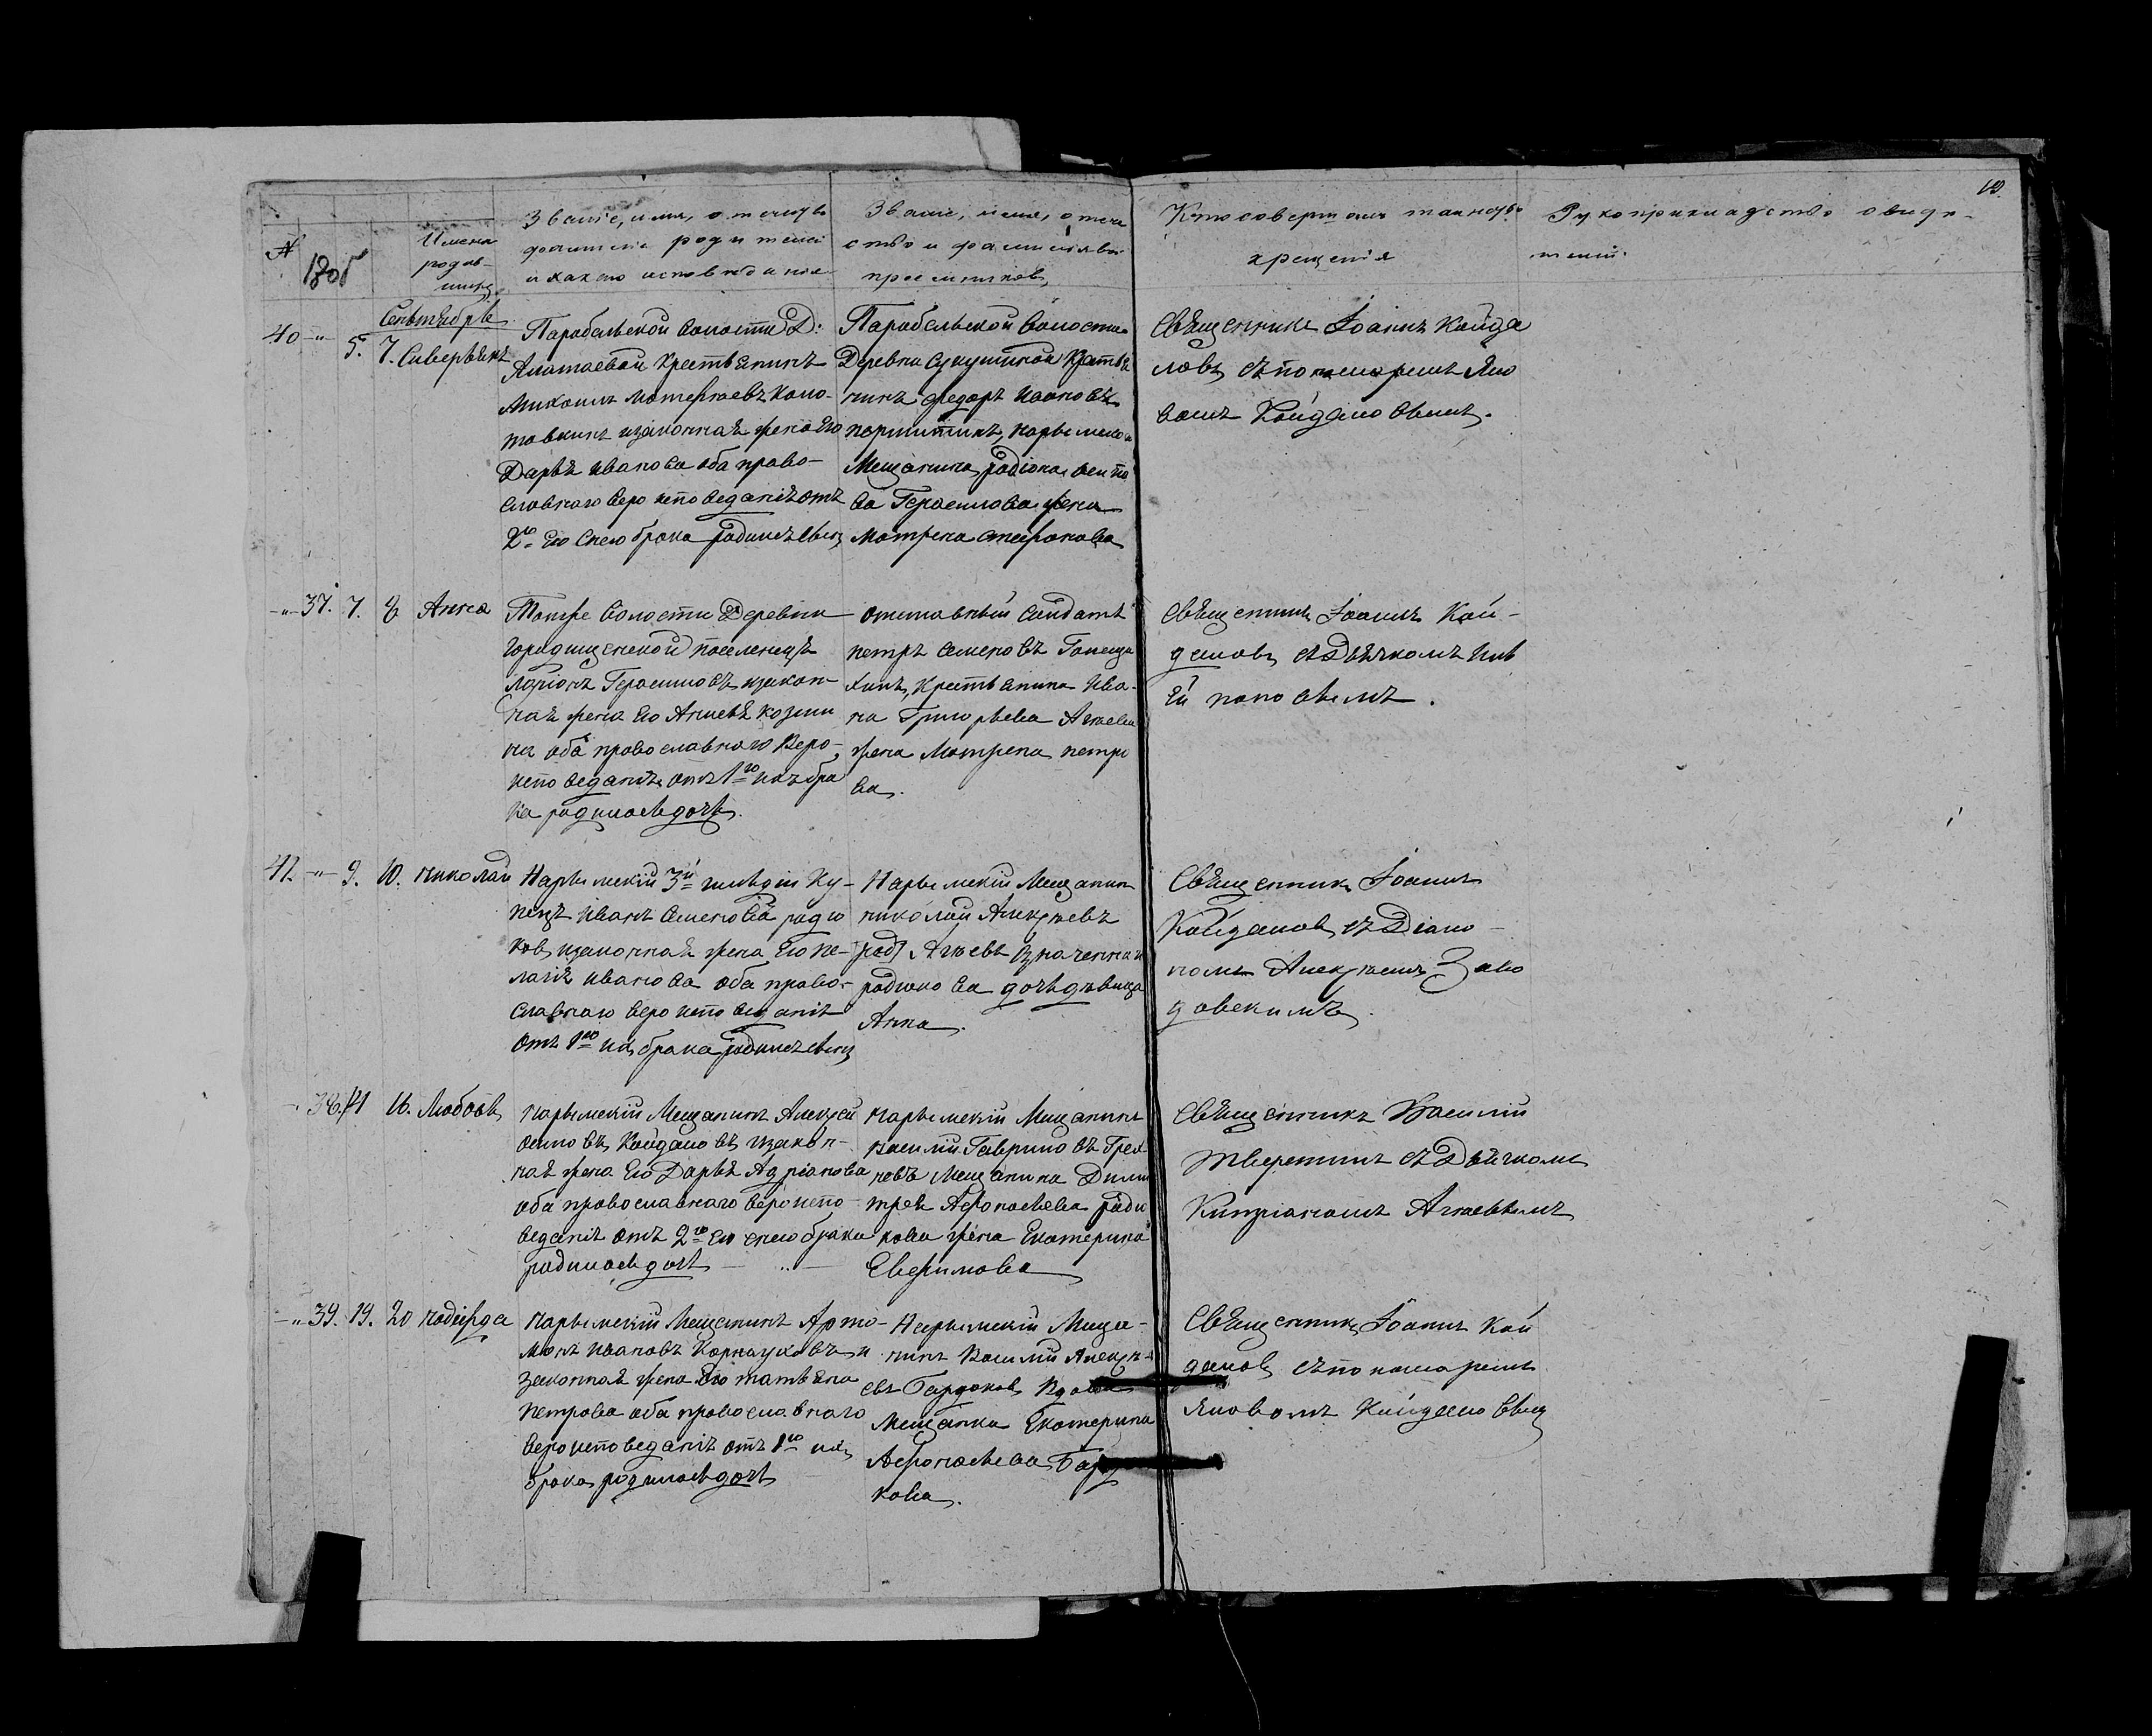 10
№
180
Имена
родив-
шихъ
Званіе, имя, отечество
фамилія родителей
и какого исповеданія
Званіе, имя, отече
ство и фамилія во
пріемниковъ
Кто совершалъ таинство
крещенія
Рукоприкладство свиде-
телей
Сентября
40 -"- 5. 7. Северьянъ
Парабельской волости Д:
Алатаевой Крестьянинъ
Михаилъ Матефеевъ Коло-
товкинъ изаконная жена Его
Дарья Иванова оба право-
славнаго вероисповеданія отъ
2го Его сего брака родился сынъ
Парабельской Волости
Деревни Сухушиной Кресть
нинъ Федоръ Ивановъ
першитинъ, нарымскаго
Мещанина родіона
ва Герасимова жена
Матрена стефанова
Священникъ Іоаннъ Кайда
ловъ съ пономаремъ Яко
вомъ Кайдаловымъ.
-"- 37. 7. 8 Анна
Тояже Волости Деревни
городищенской поселенецъ
Ларіонъ Герасимовъ изакон
ная жена Его Анисья козми
на оба православнаго Веро-
исповеданія отъ 1го ихъ бра
ка родилась дочь.
отставный Салдатъ
петръ Семеновъ Голеща
хинъ, Крестьянина Ива-
на Григорьева Агеева
жена Матрена петро
ва.
Священникъ Іоаннъ Кай-
даловъ съ Дьячкомъ
поповымъ.
41 -"- 9. 10. николай
Нарымскій 3й гильдіи Ку-
пецъ Иванъ Семеновъ родю
ковъ изаконная жена Его Пе-
лагія иванова оба право-
славнаго вероисповеданія
отъ 1го ихъ брака родился сынъ
Нарымскій Мещанин
николай Алексеевъ
Агеевъ означеннаго
родюкова дочь девица
Анна.
Священникъ Іоаннъ
Кайдаловъ съ Діако-
номъ Алексеемъ Заво
довскимъ.
-"- 38. 11 16. Любовь
нарымскій Мещанинъ Алексей
осиповъ Кайдаловъ изакон-
ная жена Его Дарья Адріанова
оба православнаго вероиспо-
веданія отъ 2го Его сего брака
родилась дочь -"-
нарымскій Мещанинъ
василій Гаврило въ Греч
невъ Мещанина Дими
трея Афонасьева родю
кова жена Екатерина
Евфимова
Священникъ Василій
Тверетинъ съ Дьячкомъ
Кипріаномъ Агеевымъ
-"- 39. 19. 20 надежда
нарымскій Мещанинъ Арто-
монъ Ивановъ Корнауховъ и
законная жена Его татьяна
Петрова оба православнаго
вероисповеданія отъ 1го ихъ
брака родилась дочь
Нарымскій Меща-
нинъ Василій Алексе-
евъ Бардаковъ вдова
Мещанка Екатерина
Афонасьева Бар
кова.
Священникъ Іоаннъ Кай
даловъ съ пономаремъ
Яковомъ Кайдаловымъ